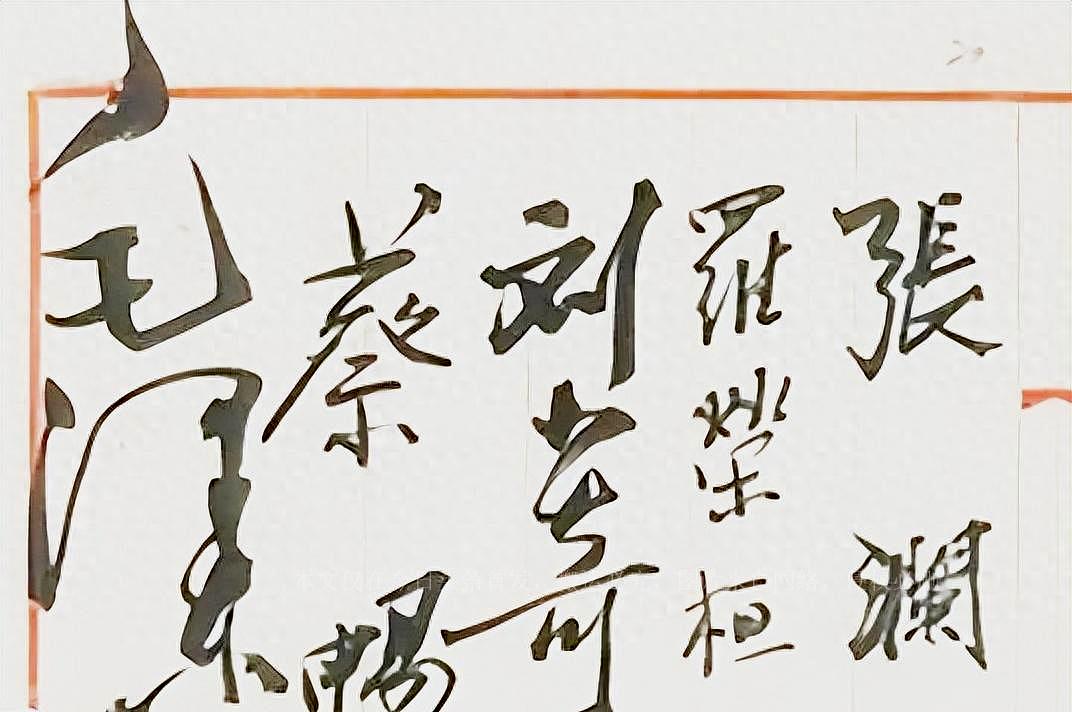 張瀾
羅榮桓
刘少奇
蔡暢
毛澤